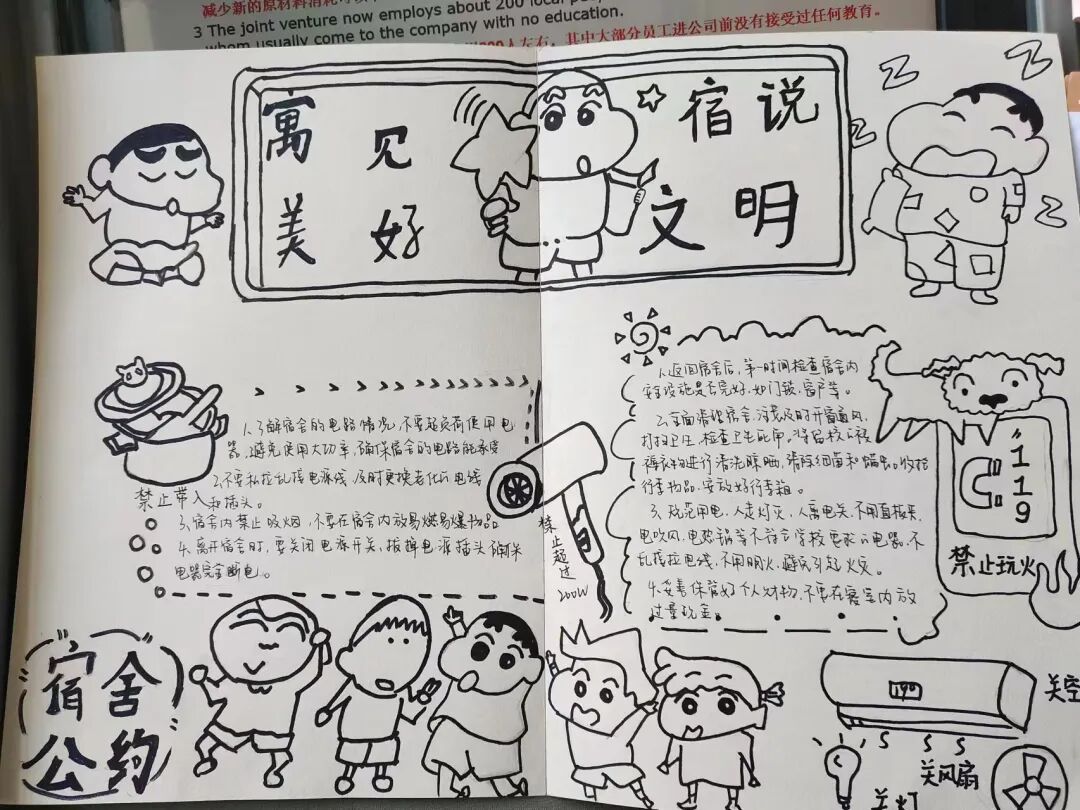 减少新的原材料消耗
3 The joint venture now employs about 200 local
whom usually come to the company with no education.
人左右，其中大部分员工进公司前没有接受过任何教育。
寓见
美好
宿说
文明
Z
Z
Z
Z
1.了解宿舍的电路情况，不要超负荷使用电
器，避免使用大功率，确保宿舍的电路能承受
2.不要私拉乱接电源线，及时更换老化电线
和插头。
3.宿舍内禁止吸烟，不要在宿舍内放易燃易爆物品
4.离开宿舍时，要关闭电源开关，拔掉电源插头确保
电器完全断电。
禁止带入
禁止超过
200W
1.返回宿舍后，第一时间检查宿舍内
设施是否完好，如门锁、窗户等。
2.全面清理宿舍，清晨及时开窗通风，
打扫卫生，检查卫生死角。将留校
裤衣物进行清洗晾晒，清除细菌和螨虫。收拾
行李物品，安放好行李箱。
3.规范用电，人走灯灭，人离电关，不用直板夹，
电吹风，电热锅等不符合学校要求的电器，不
乱接拉电线，不用明火，避免引起火灾。
4.妥善保管好个人财物，不要在寝室内放
过量现金。
“119
禁止玩火
宿舍
公约
19°
关空
关风扇
关灯